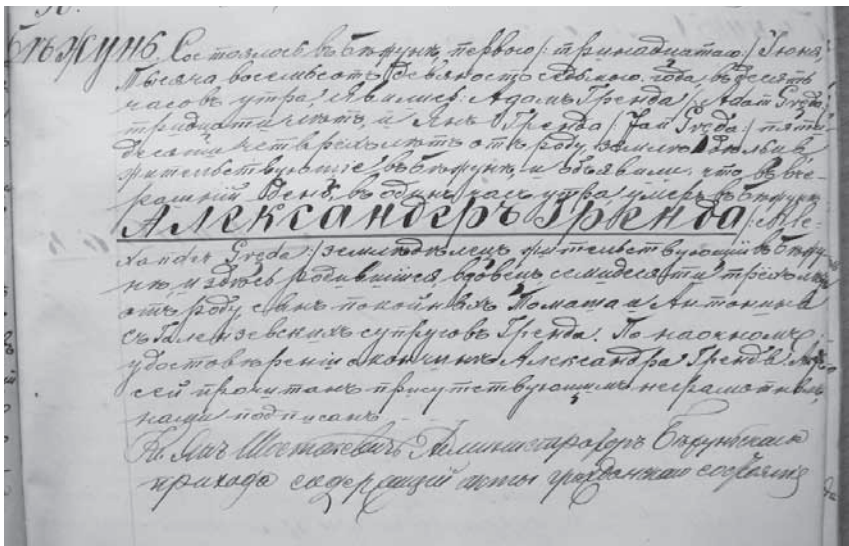 Бѣжунь. Состоялось въ Бѣжунѣ, перваго /: тринадцатаго :/ Іюня,
тысяча восемьсотъ девяносто седьмого года, въ десять
часовъ утра, явились: Адамъ Гренда /: Adam Gręda :/
тридцати лѣтъ, и Янъ Гренда /: Jan Gręda :/ пяти
десяти четырехъ лѣтъ отъ роду, земледѣльцы въ
жительствующіе въ Бѣжунѣ, и объявили, что вче-
рашній день, въ одинъ часъ утра, умеръ въ Бѣжунѣ
Александеръ Гренда /: Ale-
xander Gręda :/ земледѣлецъ жительствующій въ Бѣжу
нѣ, и здѣсь родившійся, вдовецъ, семидесяти трехъ лѣтъ
отъ роду, сынъ покойныхъ Томаша и Антонина
съ супруговъ Гренда. По наочномъ
удостовѣреніи о кончинѣ Александра Гренды,
сей прочитанъ присутствующимъ неграмотнымъ,
нами подписанъ.
Кс. Янъ Шостакевичъ Администраторъ Бѣжунскаго
прихода содержащій акты гражданскаго состоянія